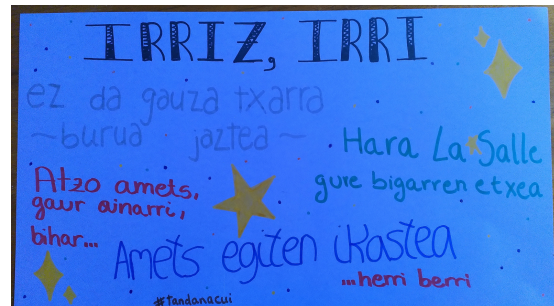 IRRIZ, IRRI
ez da gauza txarra
~burua jaztea~
Hara La Salle
gure bigarren etxea
Atzo amets,
gaur oinarri,
bihar...
Amets egiten ikastea
...herri berri
#tandanacui